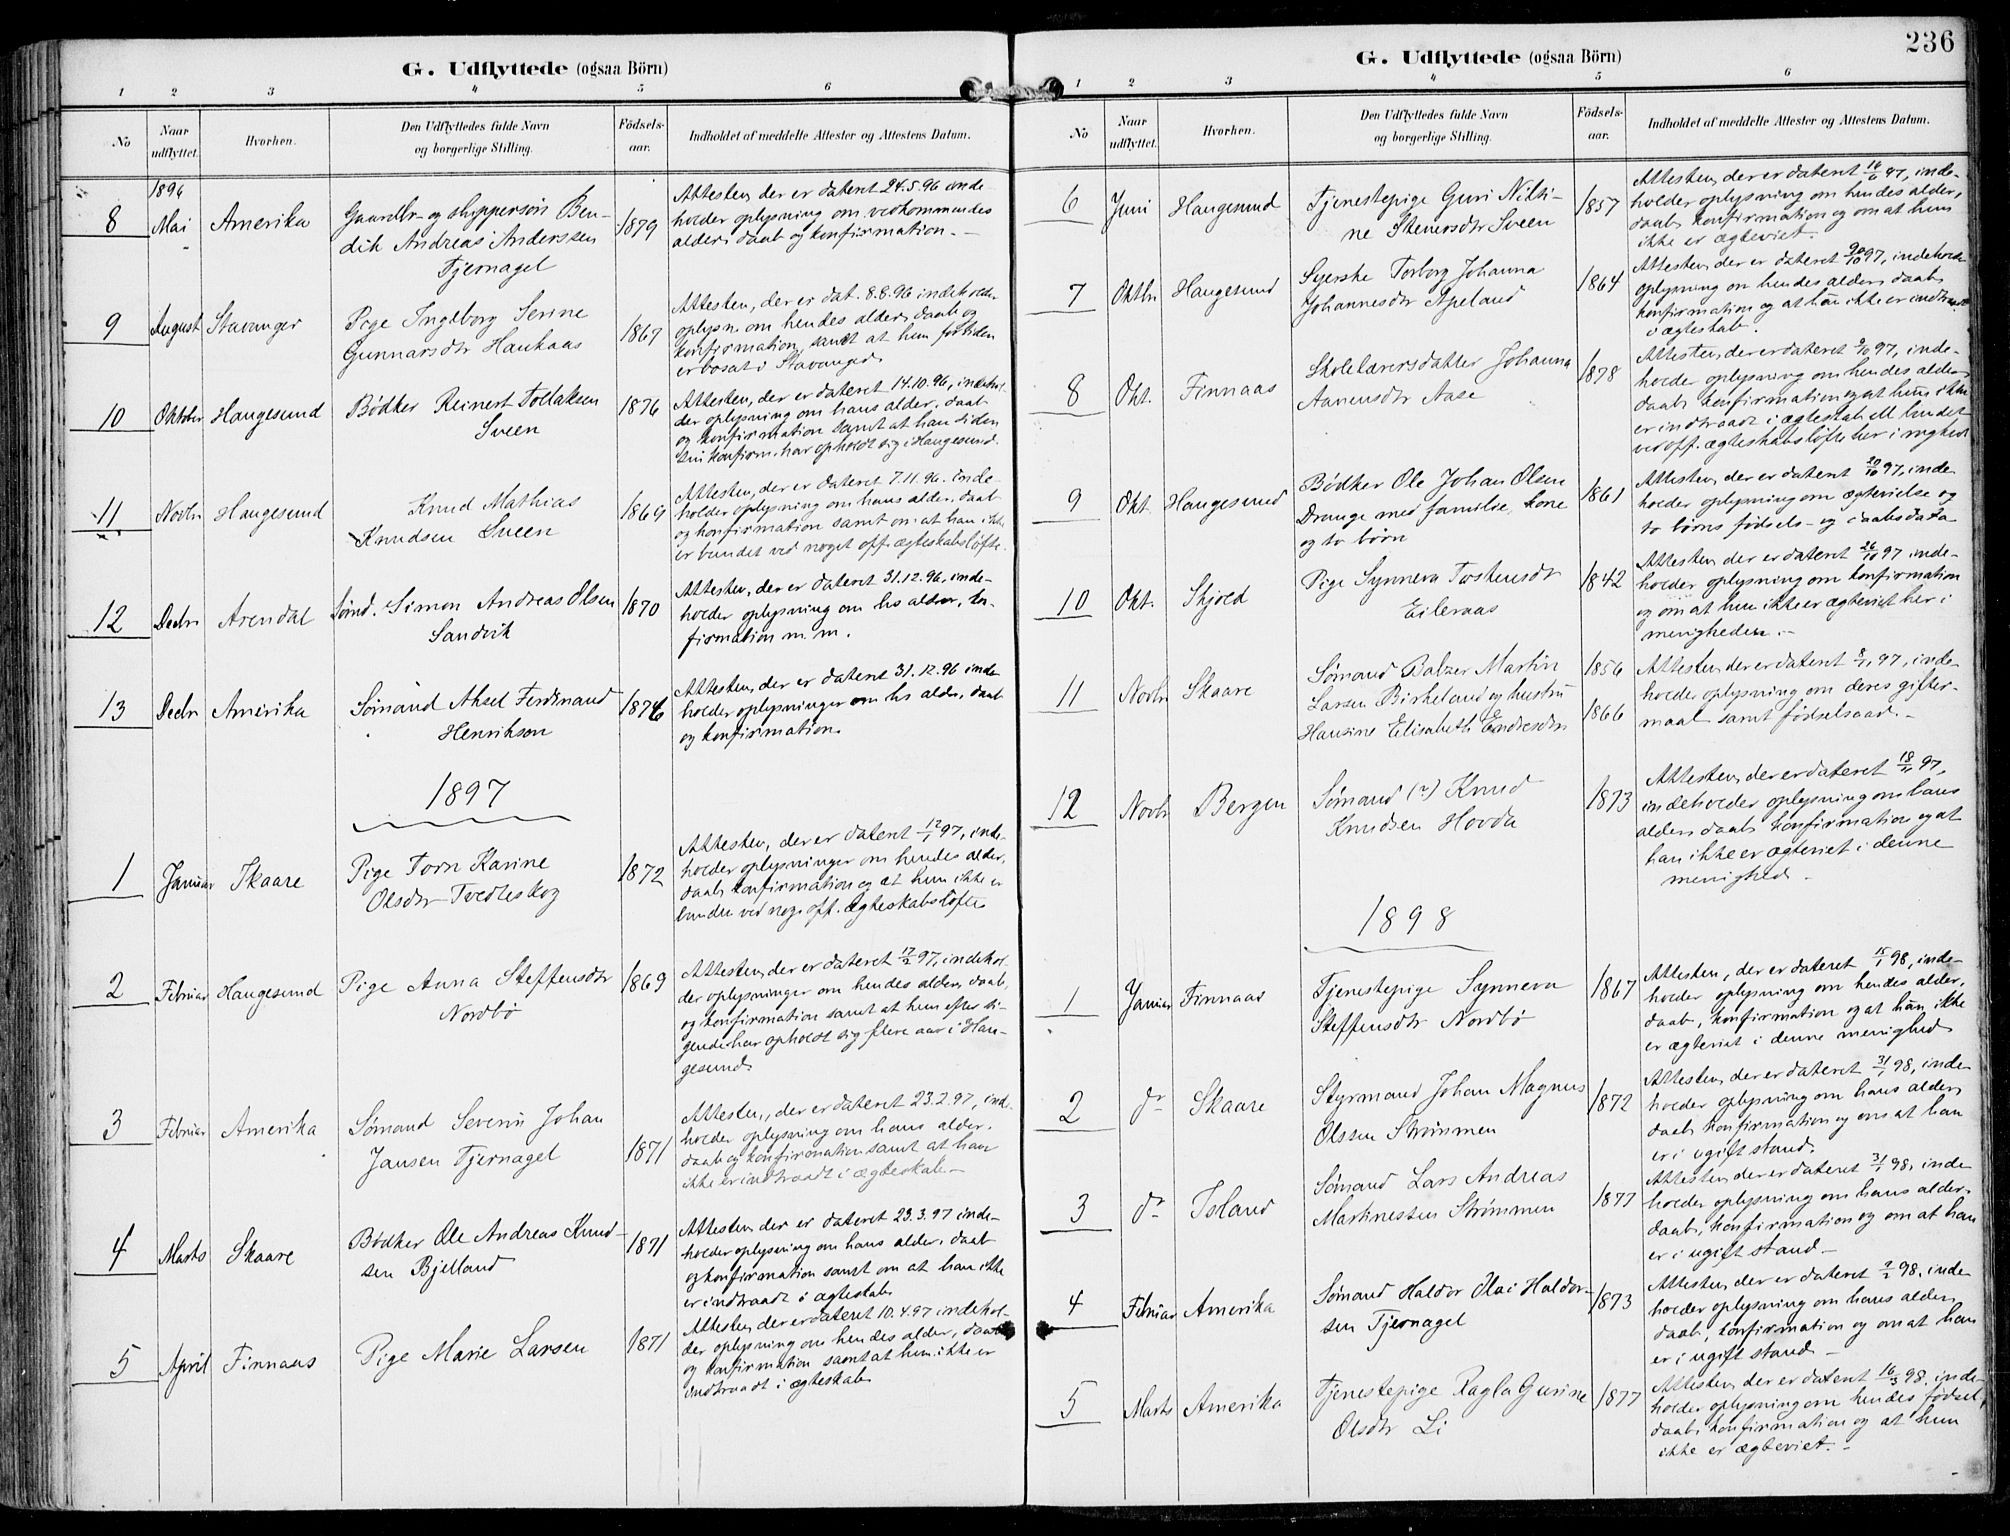 236
G. Udflyttede (ogsaa Börn)
1 2 3 4 5 6
No
Naar udflyttet.
Hvorhen.
Den Udflyttedes fulde Navn
og borgerlige Stilling.
Födsels-
aar.
Indholdet af meddelte Attester og Attestens Datum.
1896
8 Mai Amerika
Gaardbr- og skippersøn Ben-
dik Andreas Anderssen
Tjernagel
1879
Attesten, der er dateret 24.5.96 inde-
holder oplysning om vedkommendes
alder, daab og konfirmation. -
9 August Stavanger
Pige Ingeborg Serine
Gunnarsdtr Haukaas
1867
Attesten, der er dat. 8.8.96 indehold.
oplysn. om hendes alder, daab og
konfirmation, samt at hun for tiden
er bosat i Stavanger.
10 Oktober Haugesund
Bødker Reinert Tollaksen
Sveen
1876
Attesten, der er dateret 14.10.96, indehol-
der oplysning om hans alder, daab
og konfirmation samt at han siden
sin konfirm. har opholdt sig i Haugesund.
11 Novbr Haugesund
Knud Mathias
Knudsen Sveen
1869
Attesten, der er dateret 7.11.96. inde-
holder oplysning om hans alder, daab
og konfirmation samt om at han ikke
er bundet ved noget off. ægteskabsløfte.
12 Decbr Arendal
Sømd. Simon Andreas Olsen
Sandvik
1870
Attesten, der er dateret 31.12.96, inde-
holder oplysning om hs alder, kon-
firmation m. m.
13 Decbr Amerika
Sømand Aksel Ferdinand
Henrikson
1876
Attesten, der er dateret 31.12.96 inde-
holder oplysninger om hs alder, daab
og konfirmation.
1897
1 Januar Skaare
Pige Torn Karine
Olsdtr Tvedteskog
1872
Attesten, der er dateret 12/1 97, inde-
holder oplysninger om hendes alder,
daab, konfirmation og at hun ikke er
bunden ved nogs off. ægteskabsløfte
2 Februar Haugesund
Pige Anna Steffensdtr
Nordbø
1869
Attesten, der er dateret 17/2 97, indehol-
der oplysninger om hendes alder, daab,
og konfirmation samt at hun efter si-
gende har opholdt sig flere aar i Hau-
gesund.
3 Februar Amerika
Sømand Severin Johan
Jansen Tjernagel
1871
Attesten, der er dateret 23.2.97, inde-
holder oplysning om hans alder,
daab og konfirmation samt at han
ikke er indtraadt i ægteskab. -
4 Marts Skaare
Bødker Ole Andreas Knud-
sen Bjelland
1871
Attesten, der er dateret 23.3.97 inde-
holder oplysning om hans alder, daab
og konfirmation samt om at han ikke
er indtraadt i ægteskab
5 April Finnaas
Pige Marie Larsen
1871
Attesten, der er dateret 10.4.97 indehol-
der oplysning om hendes alder, daab
og konfirmation samt at hun ikke er
indtraadt i ægteskab
G. Udflyttede (ogsaa Börn)
1 2 3 4 5 6
No
Naar udflyttet.
Hvorhen.
Den Udflyttedes fulde Navn
og borgerlige Stilling.
Födsels-
aar.
Indholdet af meddelte Attester og Attestens Datum.
6 Juni Haugesund
Tjenestepige Guri Nilsi-
ne Stenersdtr Sveen
1857
Attesten, der er dateret 16/6 97, inde-
holder oplysning om hendes alder,
daab, konfirmation og om at hun
ikke er ægteviet.
7 Oktbr Haugesund
Syerske Torborg Johanna
Johannesdtr Apeland
1864
Attesten, der er dateret 9/10 97, indehold.
oplysning om hendes alder, daab,
konfirmation og at hun ikke er indtraadt
i ægteskab.
8 Okt. Finnaas
Skolelærersdatter Johanna
Aanensdtr Aase
1878
Attesten, der er dateret 9/10 97, inde-
holder oplysning om hendes alder,
daab, konfirmation og at hun ikke
er indtraadt i ægteskab ell. bundet
ved off. ægteskabsløfte her i mghed
9 Okt. Haugesund
Bødker Ole Johan Olsen
Drange med familie, kone
og to børn
1861
Attesten, der er dateret 20/10 97, inde-
holder oplysning om ægtevielse og
to børns fødsels- og daabsdata
10 Okt. Skjold
Pige Synneva Tostensdtr
Eileraas
1842
Attesten, der er dateret 26/10 97 inde-
holder oplysning om konfirmation
og om at hun ikke er ægteviet her i
menigheden. -
11 Novbr Skaare
Sømand Balzer Martin
Larsen Birkeland og hustru
Hansine Elisabeth Endresdtr
1856
1866
Attesten, der er dateret 8/11 97, inde-
holder oplysning om deres gifter-
maal samt fødselsaar. -
12 Novbr Bergen
Sømand (?) Knud
Knudsen Hovda
1873
Attesten, der er dateret 18/11 97,
indeholder oplysning om hans
alder, daab, konfirmation og at
han ikke er ægteviet i denne
menighed -
1898
1 Januar Finnaas
Tjenestepige Synneva
Steffensdtr Nordbø
1867
Attesten, der er dateret 15/1 98, inde-
holder oplysning om hendes alder,
daab, konfirmation og at hun ikke
er ægteviet i denne menighed
2 do Skaare
Styrmand Johan Magnus
Olssen Strømmen
1872
Attesten, der er dateret 31/1 98, inde-
holder oplysning om hans alder,
daab, konfirmation og om at han
er i ugift stand.
3 do Island
Sømand Lars Andreas
Martinessen Strømmen
1877
Attesten, der er dateret 31/1 98, inde-
holder oplysning om hans alder,
daab, konfirmation og om at han
er i ugift stand -
4 Februar Amerika
Sømand Haldor Olai Haldor-
sen Tjernagel
1873
Attesten, der er dateret 9/2 98, inde-
holder oplysning om hans alder,
daab, konfirmation og om at han
er i ugift stand -
5 Marts Amerika
Tjenestepige Ragla Gurine
Olsdtr Li
1877
Attesten, der er dateret 16/3 98, inde-
holder oplysning om hendes fødsel,
daab, konfirmation og at hun
ikke er ægteviet. -